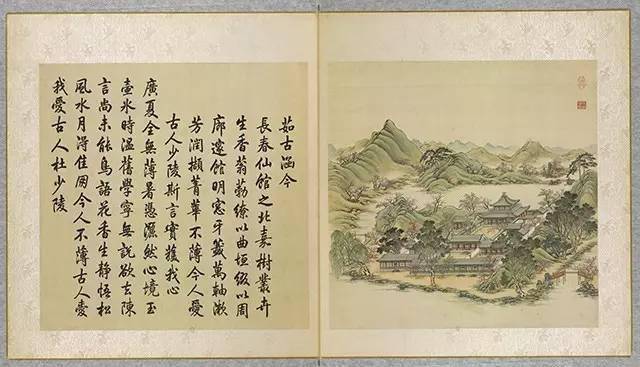 茹古涵今
長春仙館之北嘉樹叢卉
生香蓊勃繚以曲垣綴以周
廊邃館明窓牙籤萬軸漱
芳潤擷菁華不薄今人愛
古人少陵斯言實獲我心
廣夏全無薄暑憑灑然心境玉
壺氷時溫舊學寧無說欲去陳
言尚未能鳥語花香生靜悟松
風水月淂佳朋今人不薄古人愛
我愛古人杜少陵